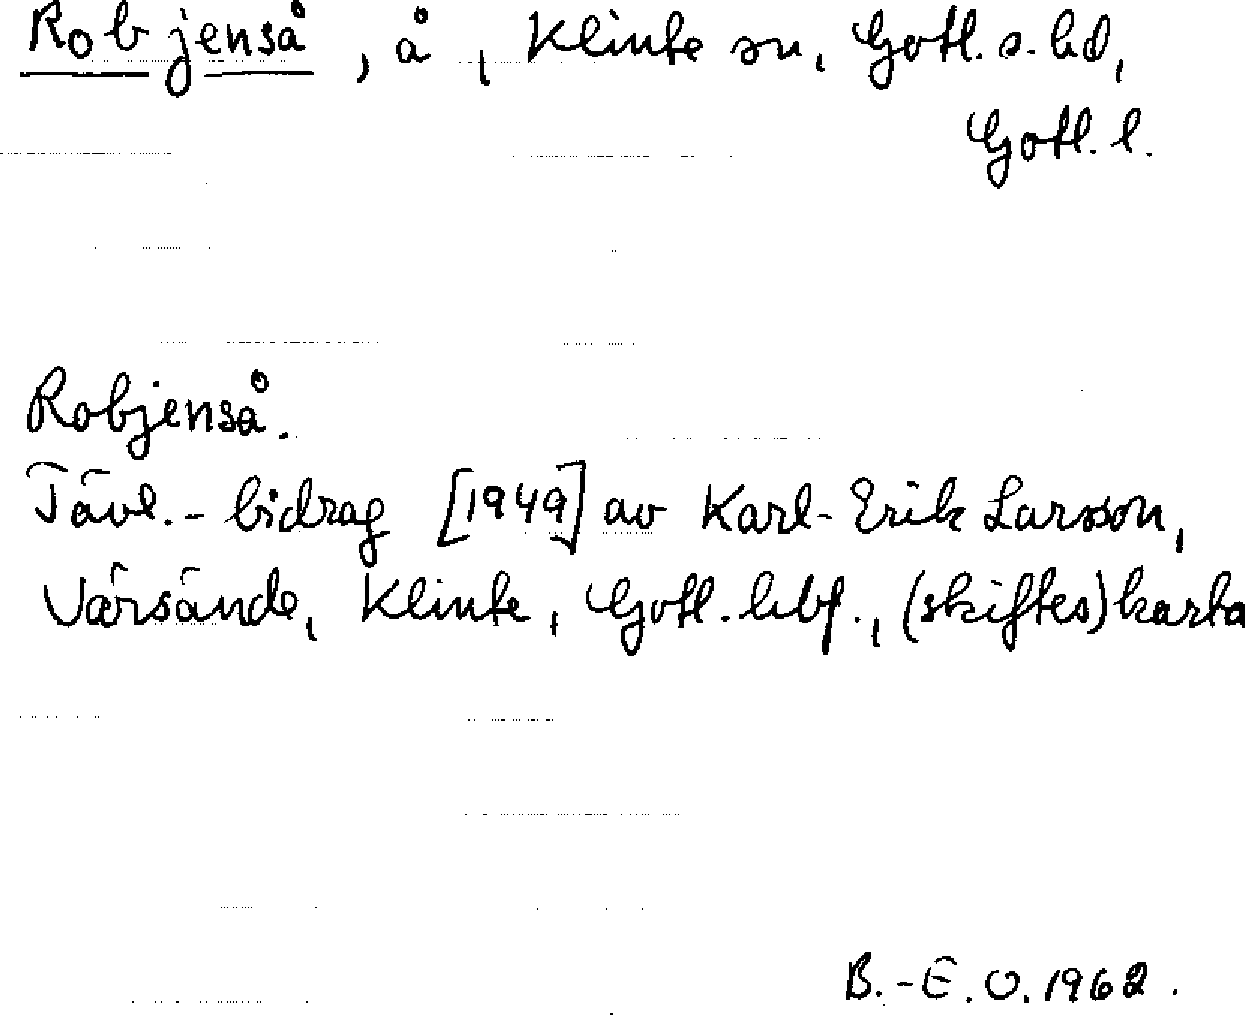 Robjenså, å, Klinte sn, Gotl. s. hd,
Gotl. l.
Robjenså.
Tävl.-bidrag [1949] av Karl-Erik Larsson,
Värsände, Klinte, Gotl. hbf., (skiftes)karta
B.-E. O. 1962.